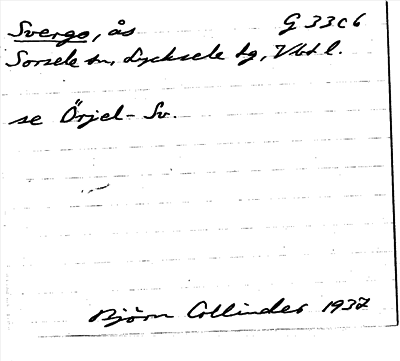 Svergo, ås G 33 c 6
Sorsele sn, Lycksele tg, Vbtl.
se Örjel-Sv.
Björn Collinder 1937